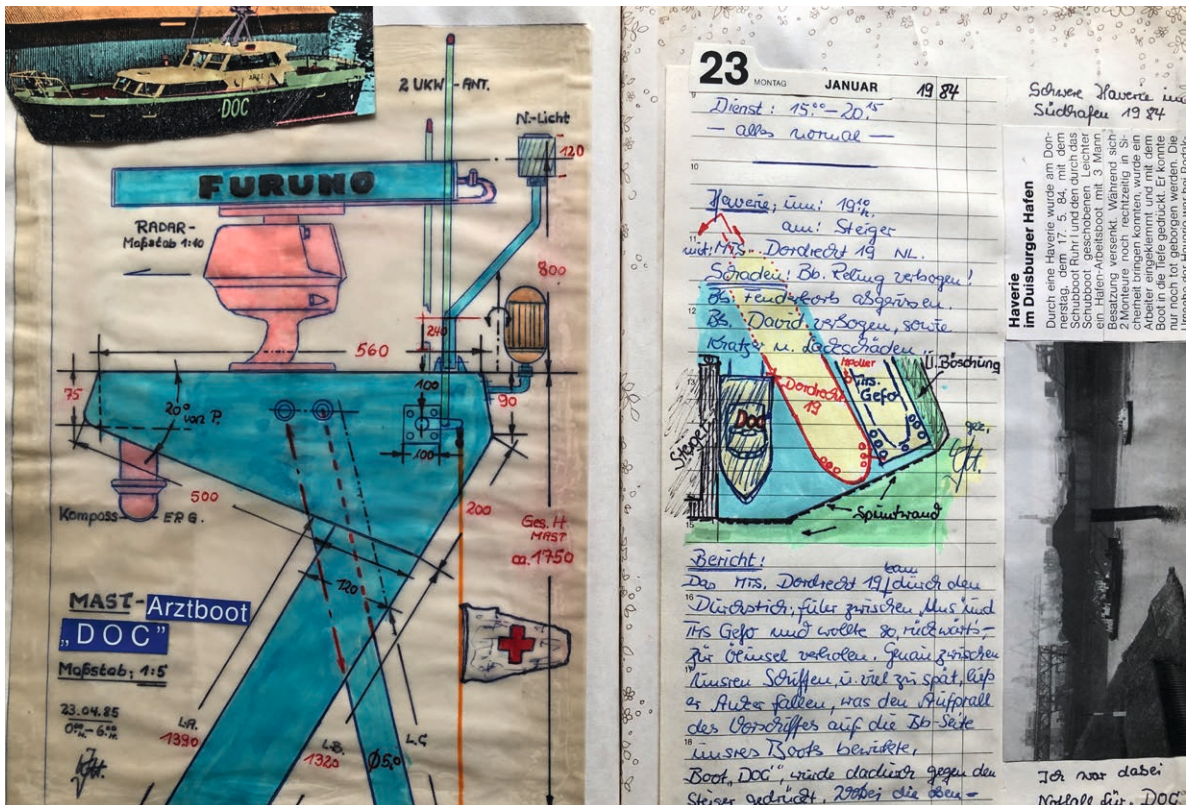 DOC
2 UKW-ANT.
N.-Licht
120
FURUNO
RADAR-
Maßstab 1:10
800
240
560
75
20°
von P.
100
90
100
500
200
Kompass
ERG.
Ges. H
MAST
ca. 1750
120
MAST-Arztboot
„DOC"
Maßstab: 1:5
23.04.85
L.A.
1390
L.B.
1320
Ø5,0
L.C
23 MONTAG JANUAR 1984
9
Dienst: 15.00–20.15
— alles normal —
10
Haverie, um: 19.10 h.
am: Steiger
11
mit: MTS. Dordrecht 19 NL.
Schaden: Bb. Reling verbogen!
Bb Fenderkorb abgerissen.
12
Bb. David verbogen, sowie
Kratzer u. Lackschäden.
13
Steiger
Doc
Dordrecht
19
Madler
TMS.
Gefo
Ü. Böschung
gez.
Spuntwand
15
Bericht:
Das MTS. Dordrecht 19 kam durch den
16
Durchstich, fuhr zwischen uns und
TMS Gefo und wollte so, rückwärts,
zur Ölinsel verholen. Genau zwischen
17
unsren Schiffen, u. viel zu spät, ließ
er Anker fallen, was den Aufprall
des Vorschiffes auf die Bb-Seite
18
unsres Boots bewirkte.
Boot „DOC", wurde dadurch gegen den
Steiger gedrückt, wobei die oben-
Schwere Haverie im
Südhafen 1984
Haverie
im Duisburger Hafen
Durch eine Haverie wurde am Don-
nerstag, dem 17. 5. 84, mit dem
Schubboot Ruhr I und den durch das
Schubboot geschobenen Leichter
ein Hafen-Arbeitsboot mit 3 Mann
Besatzung versenkt. Während sich
2 Monteure noch rechtzeitig in Si-
cherheit bringen konnten, wurde ein
Arbeiter eingeklemmt und mit dem
Boot in die Tiefe gedrückt. Er konnte
nur noch tot geborgen werden. Die
Ich war dabei
Notfall für „DOC"